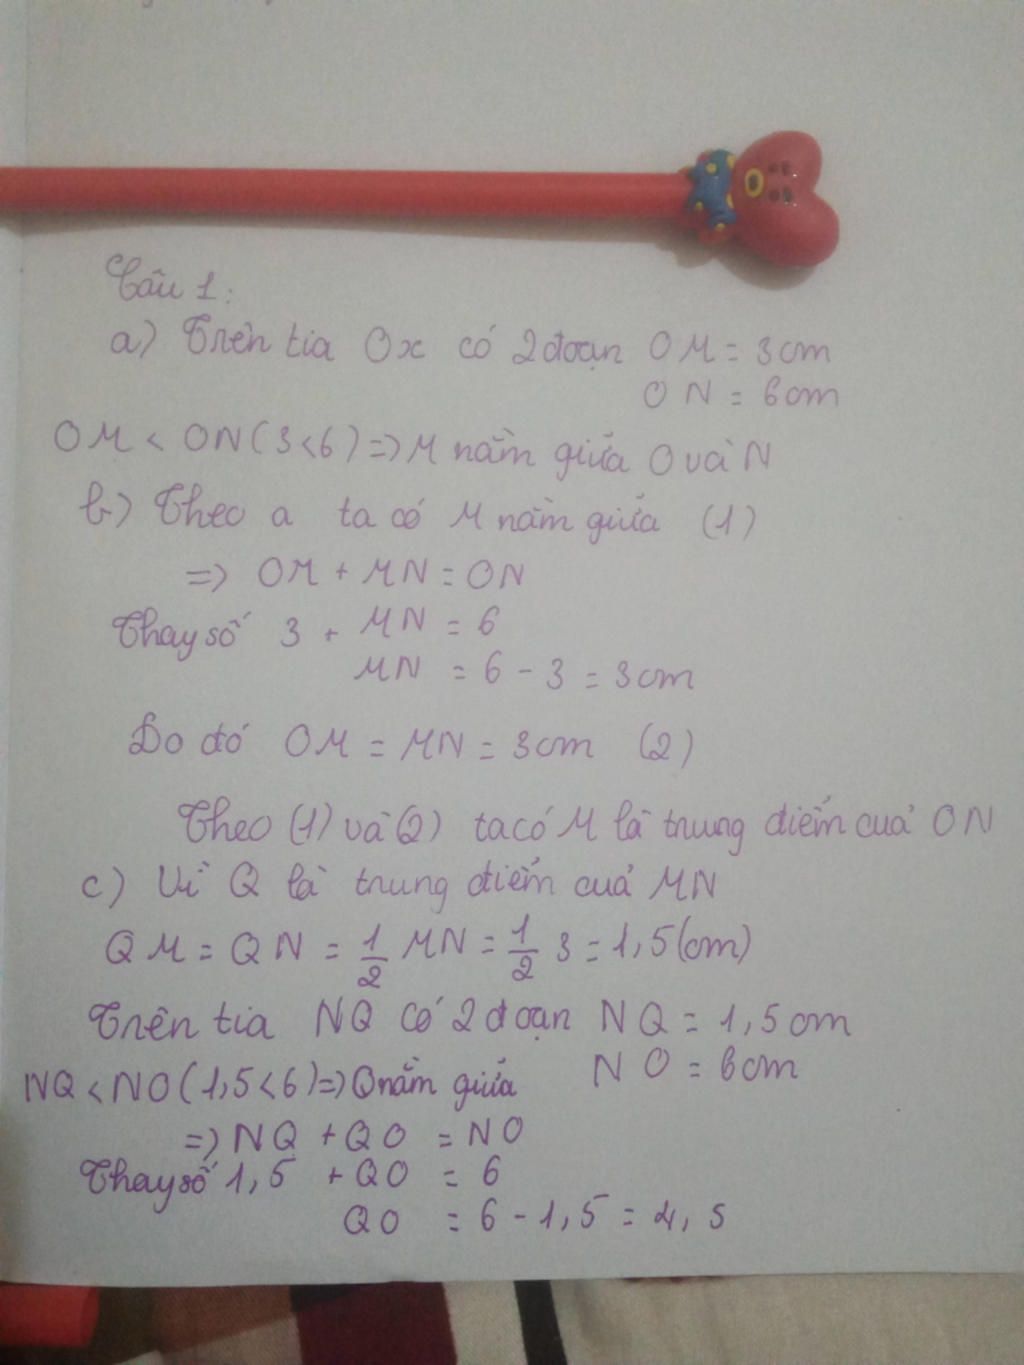 Câu 1:
a) Trên tia Ox có 2 đoạn OM = 3cm
ON = 6cm
OM < ON (3<6) => M nằm giữa O và N
b) Theo a ta có M nằm giữa (1)
=> OM + MN = ON
Thay số 3 + MN = 6
MN = 6 - 3 = 3cm
Do đó OM = MN = 3cm (2)
Theo (1) và (2) ta có M là trung điểm của ON
c) Vì Q là trung điểm của MN
QM = QN = 1/2 MN = 1/2 3 = 1,5(cm)
Trên tia NQ có 2 đoạn NQ = 1,5cm
NO = 6cm
NQ < NO (1,5<6) => Q nằm giữa
=> NQ + QO = NO
Thay số 1,5 + QO = 6
QO = 6 - 1,5 = 4,5